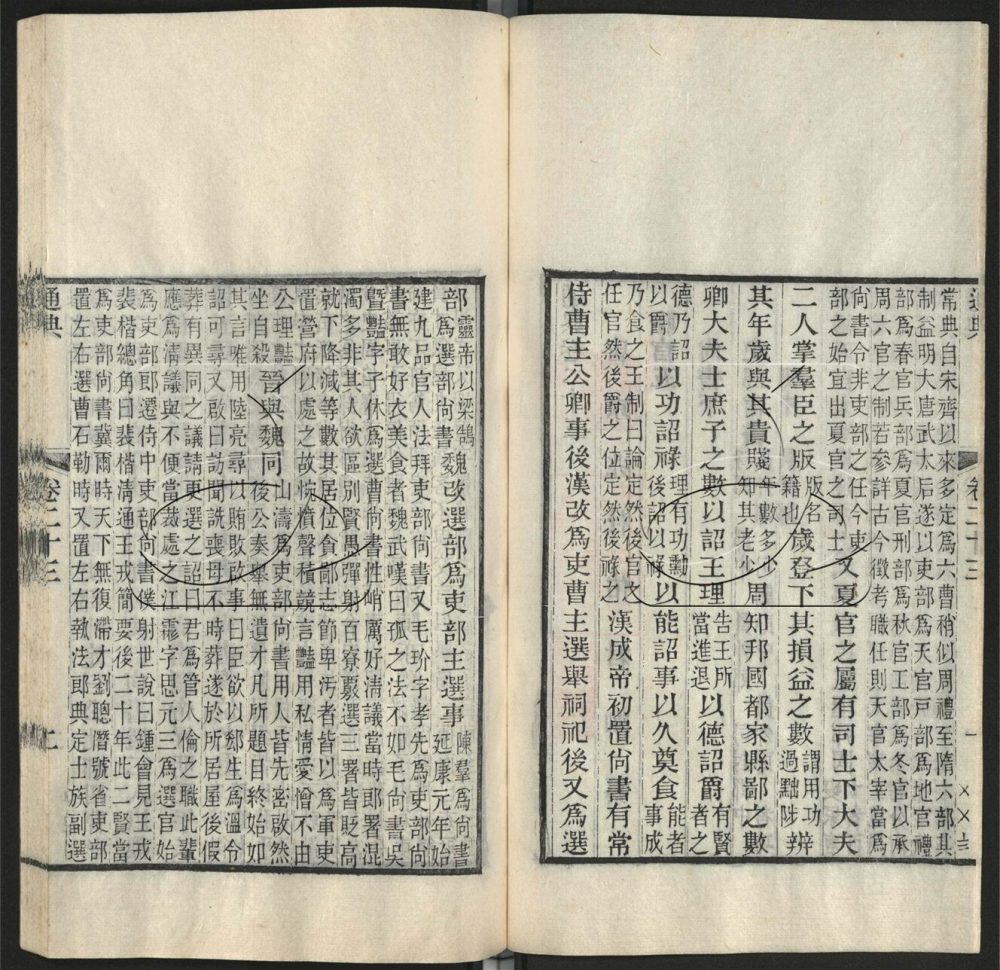 通典　卷二十三　一
常典自宋齊以來多定爲六曹稍似周禮至隋六部其
制益明大唐武太后遂以吏部爲天官戶部爲地官禮
部爲春官兵部爲夏官刑部爲秋官工部爲冬官以承
周六官之制若參詳古今徵考職任則天官太宰當爲
尚書令非吏部之任今吏部之始宜出夏官之司士又夏官之屬有司士下大夫
二人掌羣臣之版版名籍也歲登下其損益之數謂用功過黜陟辨
其年歲與其貴賤年數多少知其老少周知邦國都家縣鄙之數
卿大夫士庶子之數以詔王理告王所當進退以德詔爵有賢者之
德乃詔以爵以功詔祿理有功勳後詔以祿以能詔事以久奠食能者事成
乃食之王制曰論定然後官之任官然後爵之位定然後祿之漢成帝初置尚書有常
侍曹主公卿事後漢改爲吏曹主選舉祠祀後又爲選
部靈帝以梁鵠爲選部尚書魏改選部爲吏部主選事陳羣爲尚書延康元年始
建九品官人法拜吏部尚書又毛玠字孝先爲吏部尚
書無敢好衣美食者魏武嘆曰孤之法不如毛尚書吳
曁豔字子休爲選曹尚書性哨厲好清議當時郎署混
濁多非其人欲區別賢愚彈射百寮覈選三署皆貶高
就下降減等數其居位貪鄙志節卑汚者皆以爲軍吏
置營府以處之故怨憤聲積競言豔用私情愛憎不由
公理豔坐自殺晉與魏同山濤爲吏部尚書用人皆先密啟然後公奏舉無遺才凡所題目終始如
其言唯用陸亮尋以賄敗啟事曰臣欲以郄生爲溫令
詔可尋又啟曰訪聞詵喪母不時葬遂於所居屋後假
葬有異同之議請更選之詔曰君爲管人倫之職此輩
應爲清議與不便當裁處之江霦字思元三爲選官始
爲吏部郎遷侍中吏部尚書僕射世說曰鍾會見王戎
裴楷總角曰裴楷清通王戎簡要後二十年此二賢當
爲吏部尚書冀爾時天下無復滯才劉聰僭號省吏部
置左右選曹石勒時又置左右執法郎典定士族副選
通典　卷二十三